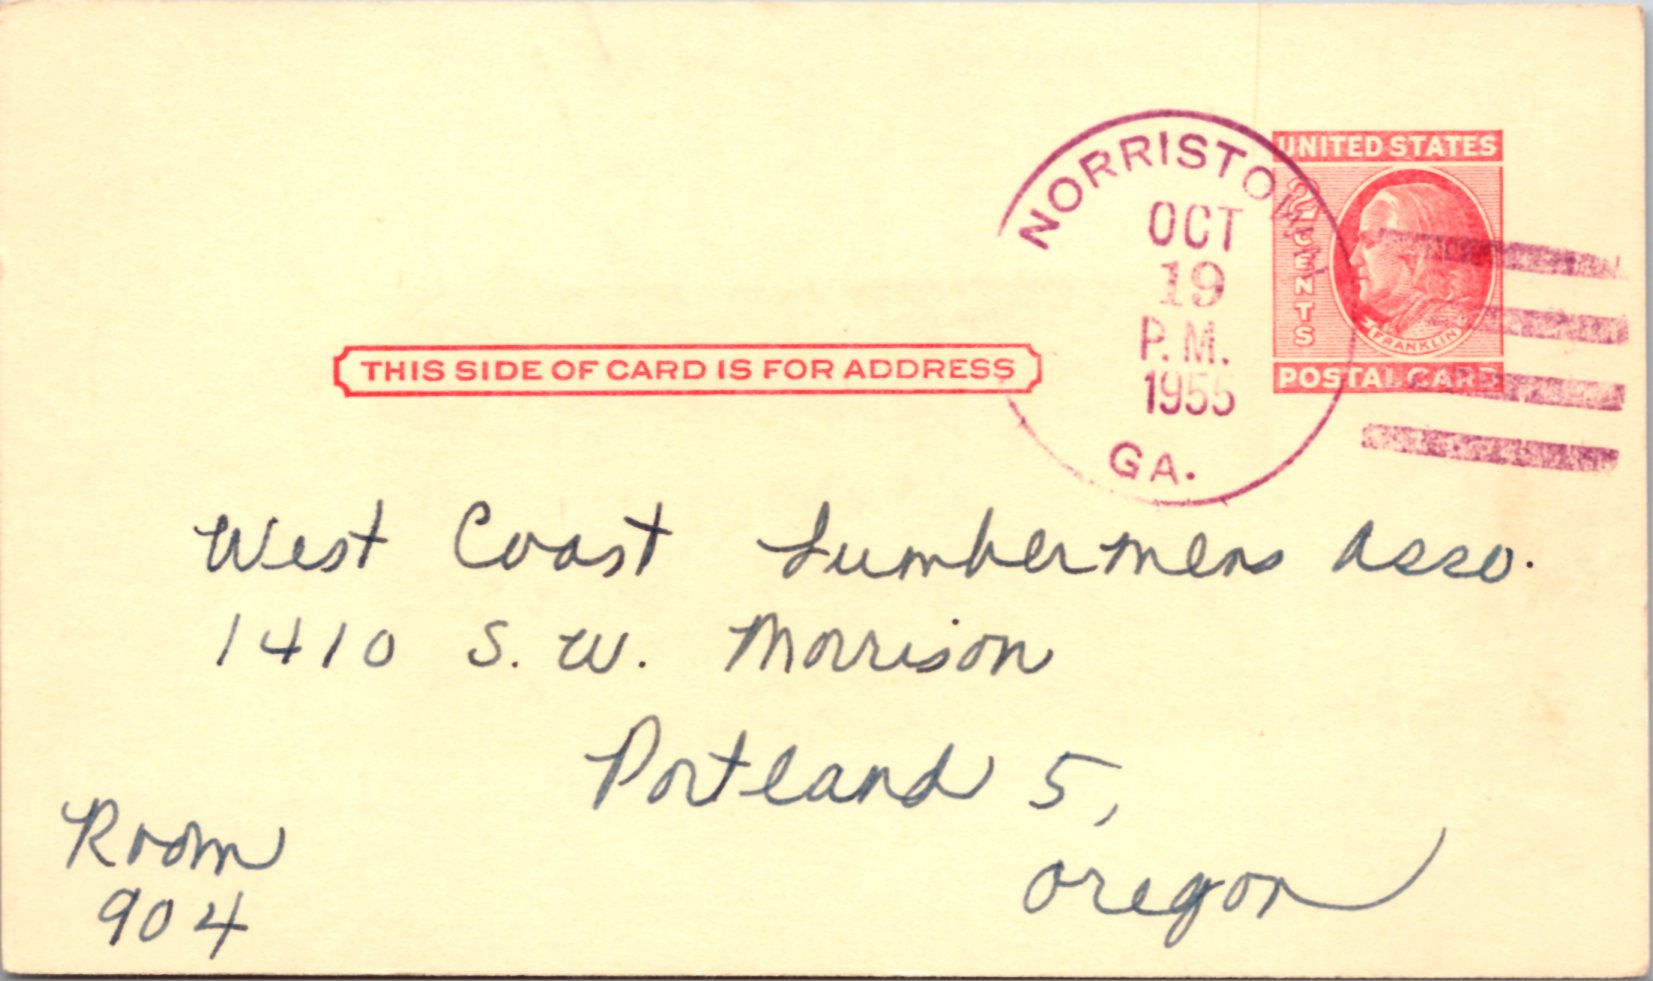 NORRISTOWN
OCT
19
P.M.
1955
GA.
UNITED STATES
2 CENTS
FRANKLIN
POSTAL CARD
THIS SIDE OF CARD IS FOR ADDRESS
West Coast Lumbermens Asso.
1410 S. W. Morrison
Portland 5,
Oregon
Room
904